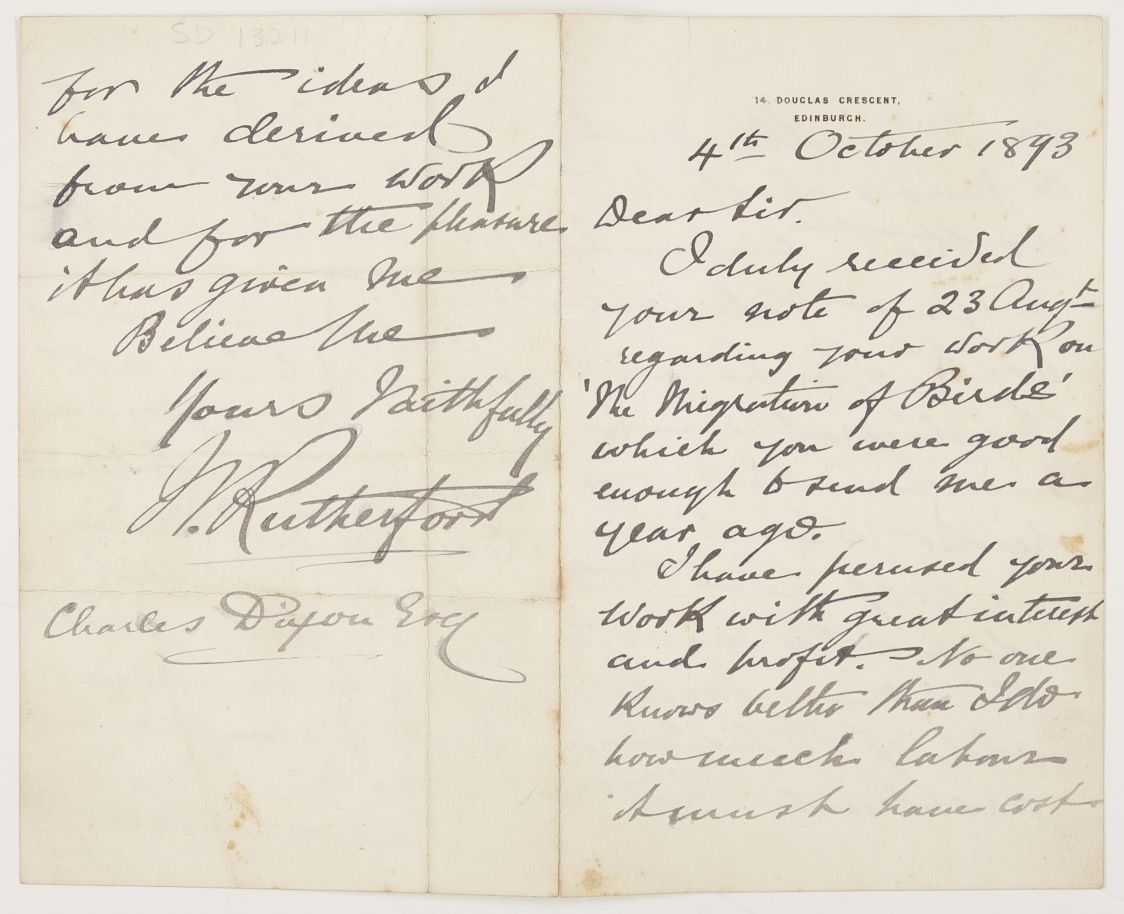 14. DOUGLAS CRESCENT,
EDINBURGH.
4th October 1893
Dear Sir.
I duly received
your note of 23 Augt
regarding your work on
'The Migration of Birds'
which you were good
enough to send me a
year ago.
I have perused your
work with great interest
and profit. No one
knows better than I do
how much labour
it must have cost
SD 13211
for the ideas I
have derived
from your work
and for the pleasure
it has given me
Believe Me
Yours Faithfully
Rutherford
Charles Dixon Esq